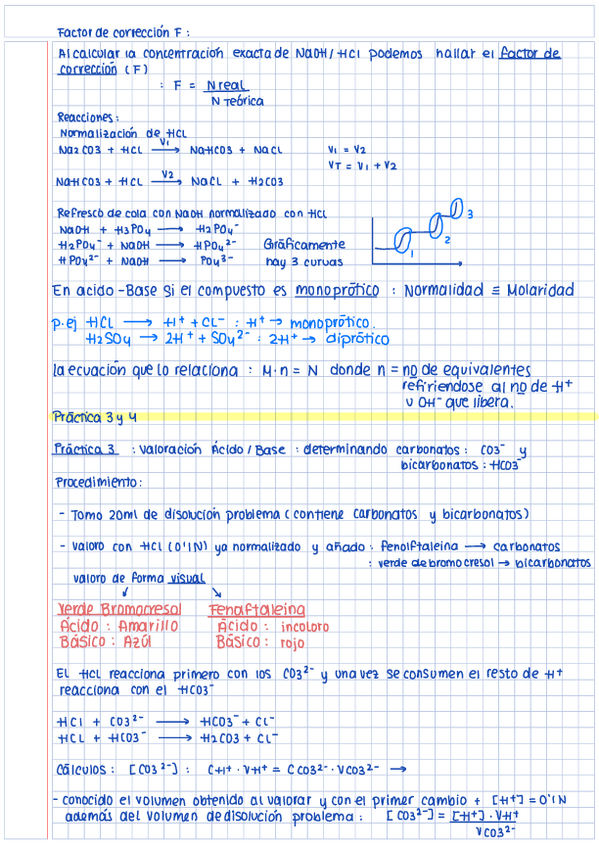 Factor de corrección F :
Al calcular la concentración exacta de NaOH/HCl podemos hallar el factor de
corrección (F)
: F = N real
N teórica
Reacciones:
Normalización de HCL
Na2CO3 + HCL V1 → NaHCO3 + NaCL V1 = V2
VT = V1 + V2
NaHCO3 + HCL V2 → NaCL + H2CO3
Refresco de cola con NaOH normalizado con HCL
NaOH + H3PO4 → H2PO4⁻
H2PO4⁻ + NaOH → HPO4²⁻ Gráficamente
HPO4²⁻ + NaOH → PO4³⁻ hay 3 curvas
1 2 3
En acido-Base si el compuesto es monoprótico : Normalidad ≡ Molaridad
p.ej HCL → H⁺ + CL⁻ : H⁺ → monoprótico.
H2SO4 → 2H⁺ + SO4²⁻ : 2H⁺ → diprótico
la ecuación que lo relaciona : M·n = N donde n = nº de equivalentes
refiriendose al nº de H⁺
u OH⁻ que libera.
Práctica 3 y 4
Práctica 3 : Valoración Ácido/Base : determinando carbonatos : CO3⁻ y
bicarbonatos : HCO3⁻
Procedimiento:
- Tomo 20ml de disolución problema (contiene carbonatos y bicarbonatos)
- valoro con HCl (0'1N) ya normalizado y añado : fenolftaleina → carbonatos
: verde de bromocresol → bicarbonatos
valoro de forma visual
Verde Bromocresol Fenaftaleing
Ácido : Amarillo Ácido : incoloro
Básico : Azúl Básico : rojo
El HCL reacciona primero con los CO3²⁻ y una vez se consumen el resto de H⁺
reacciona con el HCO3⁻
HCl + CO3²⁻ → HCO3⁻ + CL⁻
HCL + HCO3⁻ → H2CO3 + CL⁻
Cálculos : [CO3²⁻] : CH⁺·VH⁺ = CCO3²⁻·VCO3²⁻ →
- conocido el volumen obtenido al valorar y con el primer cambio + [H⁺] = 0'1N
además del volumen de disolución problema : [CO3²⁻] = [H⁺]·VH⁺
VCO3²⁻